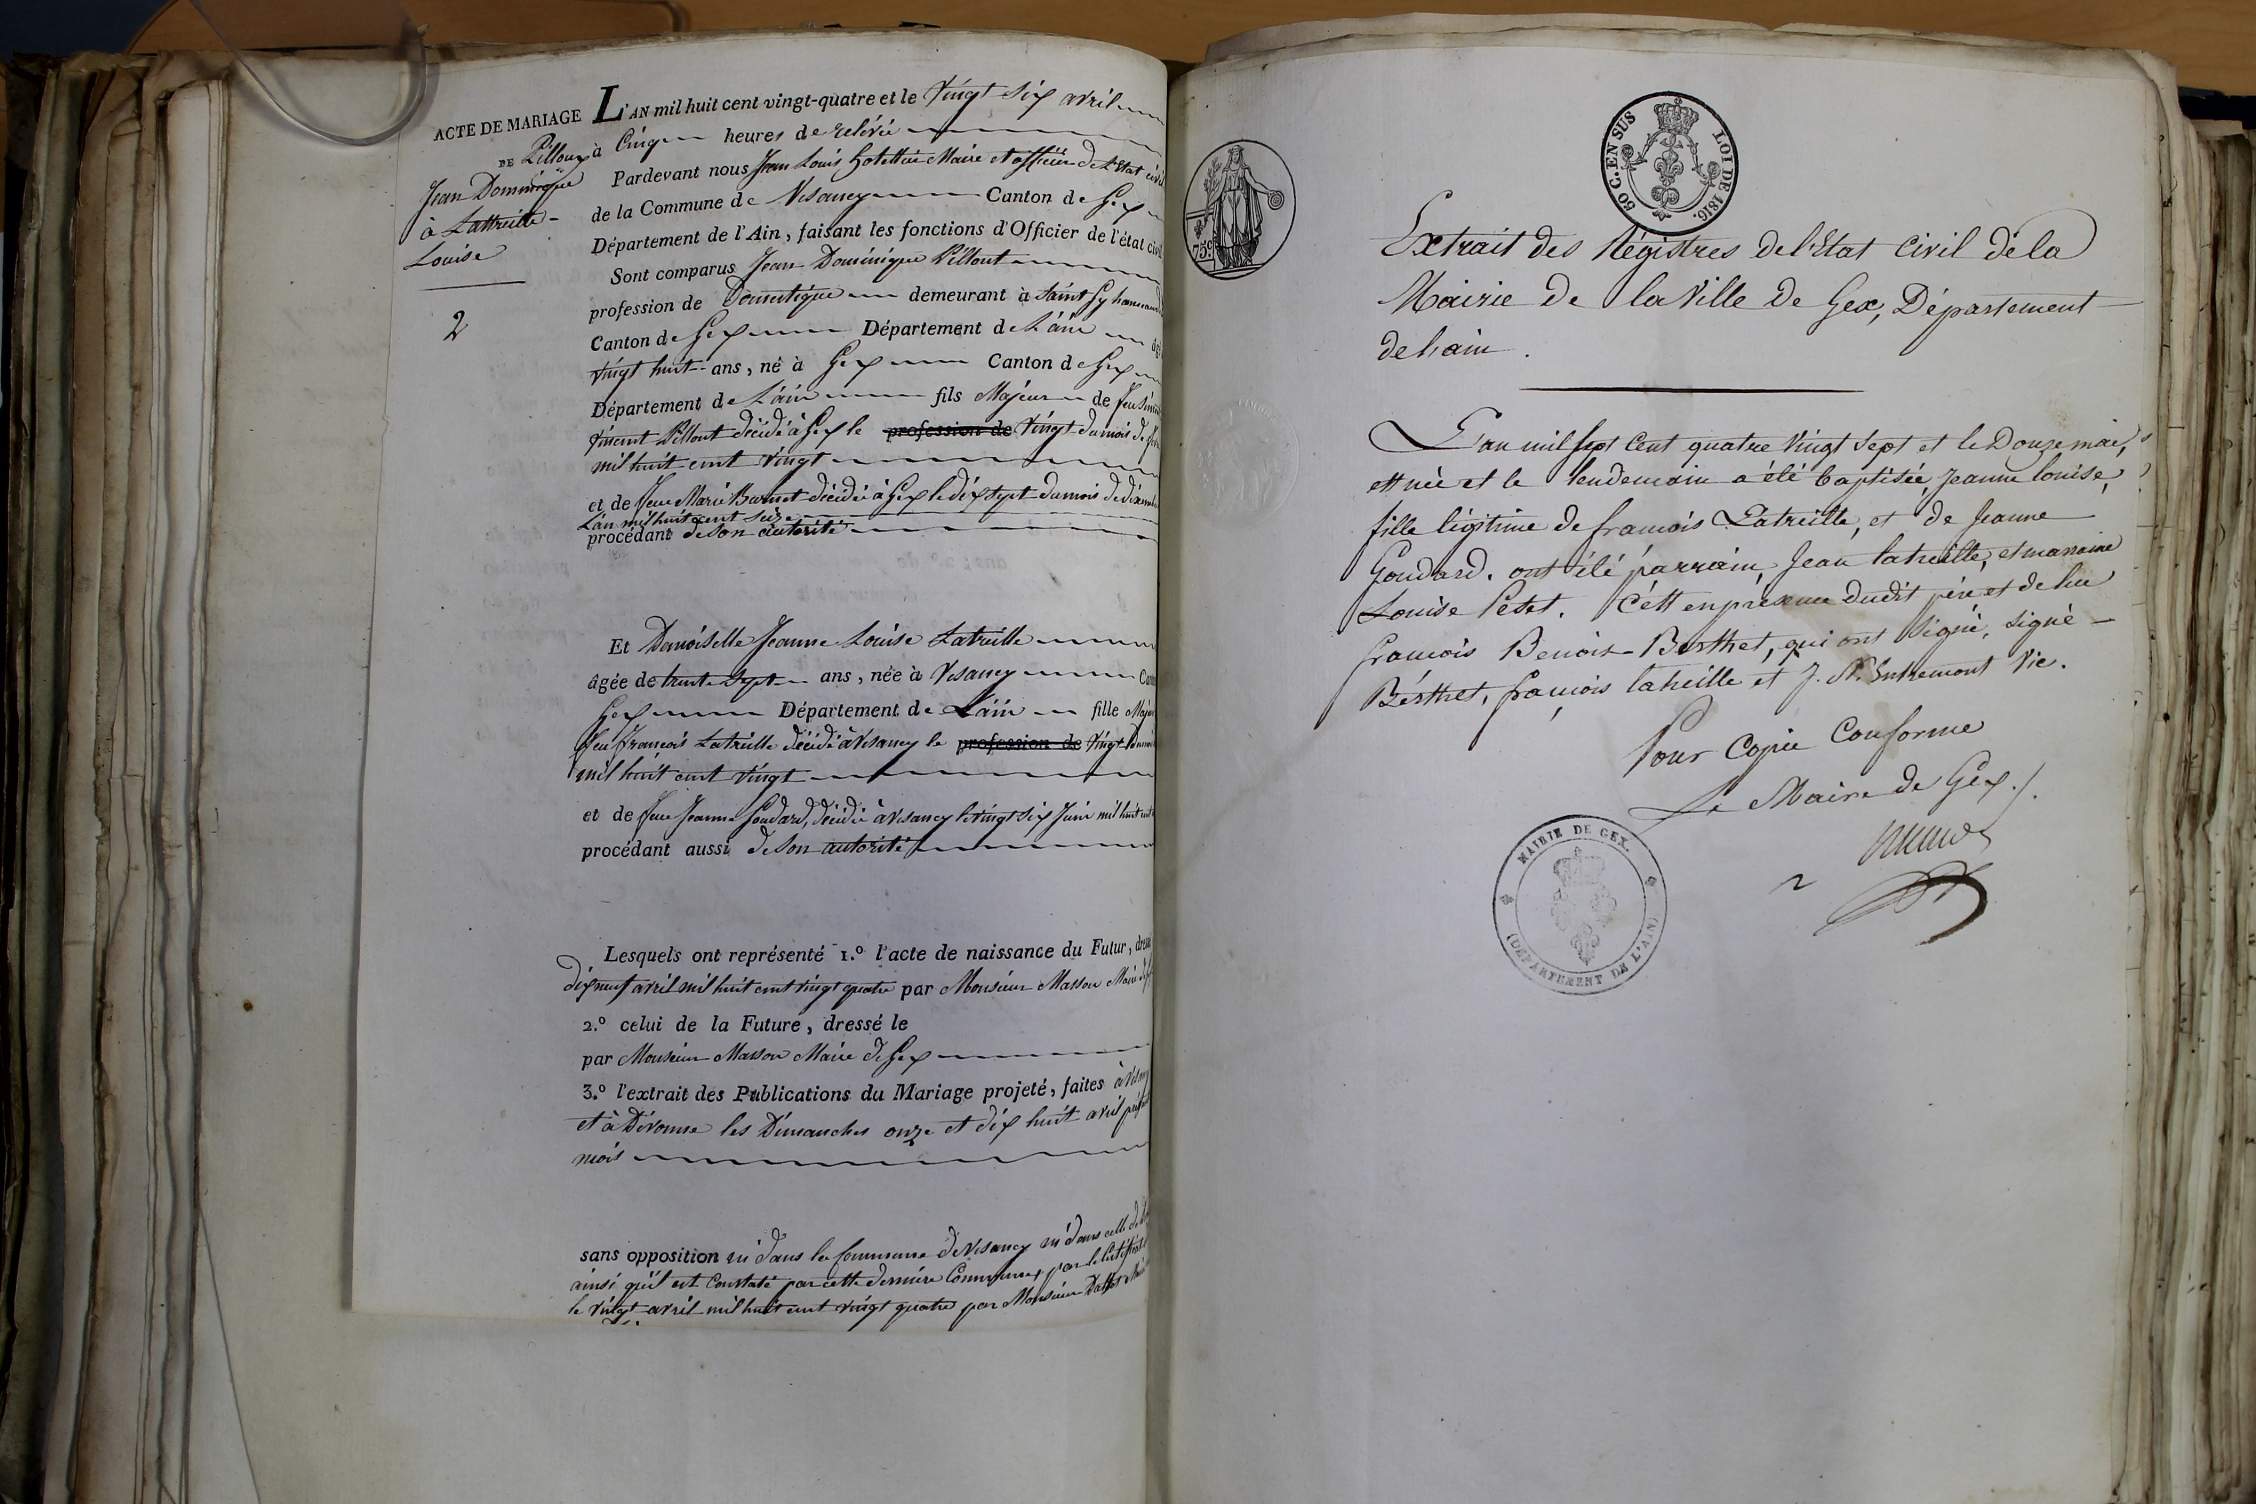 ACTE DE MARIAGE
DE Pilloux
Jean Dominique
à Lattreille
Louise
2
L'AN mil huit cent vingt-quatre et le Vingt Six avril
à Cinq heures de relévée
Pardevant nous Jean Louis hotellier Maire et officier de L'Etat civil
de la Commune de Vesancy Canton de Gex
Département de l'Ain, faisant les fonctions d'Officier de l'état civil
Sont comparus Jean Dominique Pillout
profession de Domestique demeurant à Saint
Canton de Gex Département de L'ain
Vingt huit ans, né à Gex Canton de Gex
Département de L'ain fils Majeur de feu
Vincent Pillout décédé à Gex le profession de Vingt du mois de
mil huit cent Vingt
et de feue Marie Barnet décédée à Gex le dix sept du mois de décembre
L'an mil huit cent seize
procédant de son autorité
Et Demoiselle Jeanne Louise Latreille
âgée de trente sept ans, née à Vesancy
Gex Département de L'ain fille
feu françois Latreille décédé à Vesancy le profession de Vingt
mil huit cent Vingt
et de feue Jeanne Goudard, décédée à Vesancy le vingt six Juin mil huit cent
procédant aussi de son autorité
Lesquels ont représenté 1.º l'acte de naissance du Futur,
dix neuf avril mil huit cent vingt quatre par Monsieur Masson Maire
2.º celui de la Future, dressé le
par Monsieur Masson Maire de Gex
3.º l'extrait des Publications du Mariage projeté, faites à
et à Divonne les Dimanches onze et dix huit avril
mois
sans opposition ni dans la Commune de Vesancy ni dans celle de
ainsi qu'il est Constaté par cette dernière Commune, par le
le vingt avril mil huit cent vingt quatre par Monsieur
75 c.
50 C. EN SUS
LOI DE 1816.
Extrait des Régistres de l'Etat Civil de la
Mairie de la Ville de Gex, Département
de l'ain.
L'an mil sept Cent quatre Vingt Sept et le Douze mai,
est née et le lendemain a été baptisée, Jeanne Louise,
fille légitime de françois Latreille, et de Jeanne
Goudard. ont été parrain, Jean latreille, et marraine
Louise Petet. C'est en présence dudit père et de
françois Benoit Berthet, qui ont signé, signé
Berthet, françois latreille et J. N. Entremont Vic.
Pour Copie Conforme
Le Maire de Gex
MAIRIE DE GEX.
(DÉPARTEMENT DE L'AIN)